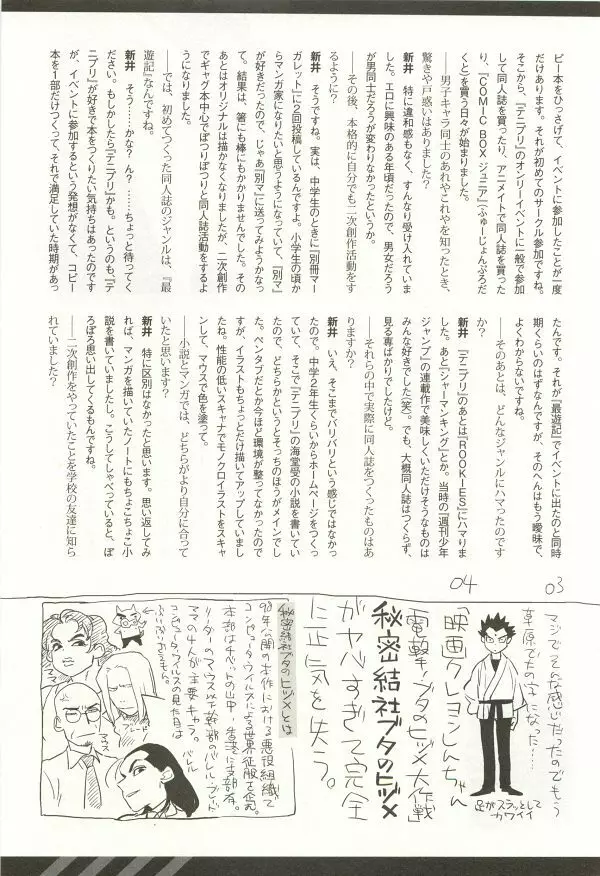 ピー本をひっさげて、イベントに参加したことが一度
だけあります。それが初めてのサークル参加ですね。
そこから、『テニプリ』のオンリーイベントに一般で参加
して同人誌を買ったり、アニメイトで同人誌を買った
り、『COMIC BOX ジュニア』（ふゅーじょんぷろだ
くと）を買う日々が始まりました。
――男子キャラ同士のあれやこれやを知ったとき、
驚きや戸惑いはありました？
新井 特に違和感もなく、すんなり受け入れていま
した。エロに興味のある年頃だったので、男女だろう
が男同士だろうが変わりなかったというか。
――その後、本格的に自分でも二次創作活動をす
るように？
新井 そうですね。実は、中学生のときに『別冊マー
ガレット』に2回投稿しているんですよ。小学生の頃か
らマンガ家になりたいと思うようになっていて、『別マ』
が好きだったので、じゃあ『別マ』に送ってみようかなっ
て。結果は、箸にも棒にもかかりませんでした。その
あとはオリジナルは描かなくなりましたが、二次創作
でギャグ本中心でぽつりぽつりと同人誌活動をするよ
うになりました。
――では、初めてつくった同人誌のジャンルは、『最
遊記』なんですね。
新井 そう……かな？ ん？ ……ちょっと待ってく
ださい。もしかしたら『テニプリ』かも。というのも、『テ
ニプリ』が好きで本をつくりたい気持ちはあったのです
が、イベントに参加するという発想がなくて、コピー
本を1部だけつくって、それで満足していた時期があっ
たんです。それが『最遊記』でイベントに出たのと同時
期くらいのはずなんですが、そのへんはもう曖昧で、
よくわからないですね。
――そのあとは、どんなジャンルにハマったのです
か？
新井 『テニプリ』のあとは『ROOKIES』にハマりま
した。あと『シャーマンキング』とか。当時の『週刊少年
ジャンプ』の連載作で美味しくいただけそうなものは
みんな好きでした（笑）。でも、大概同人誌はつくらず、
見る専ばかりでしたけど。
――それらの中で実際に同人誌をつくったものはあ
りますか？
新井 いえ、そこまでバリバリという感じではなかっ
たので。中学2年生くらいからホームページをつくっ
ていて、そこで『テニプリ』の海堂受の小説を書いてい
たので、どちらかというとそっちのほうがメインでし
た。ペンタブだとか今ほど環境が整ってなかったので
すが、イラストもちょっとだけ描いてアップしていまし
たね。性能の低いスキャナでモノクロイラストをスキャ
ンして、マウスで色を塗って。
――小説とマンガでは、どちらがより自分に合って
いたと思います？
新井 特に区別はなかったと思います。思い返してみ
れば、マンガを描いていたノートにもちょこちょこ小
説を書いていましたし。こうしてしゃべっていると、ぽ
ろぽろ思い出してくるもんですね。
――二次創作をやっていたことを学校の友達に知ら
れていました？
03
マジでそんな感じだったのでもう
草原で大の字になった……
足がスラッとして
カワイイ
04
「映画クレヨンしんちゃん
電撃！ブタのヒヅメ大作戦」
秘密結社ブタのヒヅメ
がヤバすぎて完全
に正気を失う。
秘密結社ブタのヒヅメとは
98年公開の本作における悪役組織で
コンピュータウイルスによる世界征服を企む。
本部はチベットの山中！香港に支部有。
リーダーのマウス以下幹部のバレル・ブレード・
ママの4人が主要キャラ。
コンピュータウイルスの見た目は
ぶりぶりざえもん。
ブレード
マウス
バレル